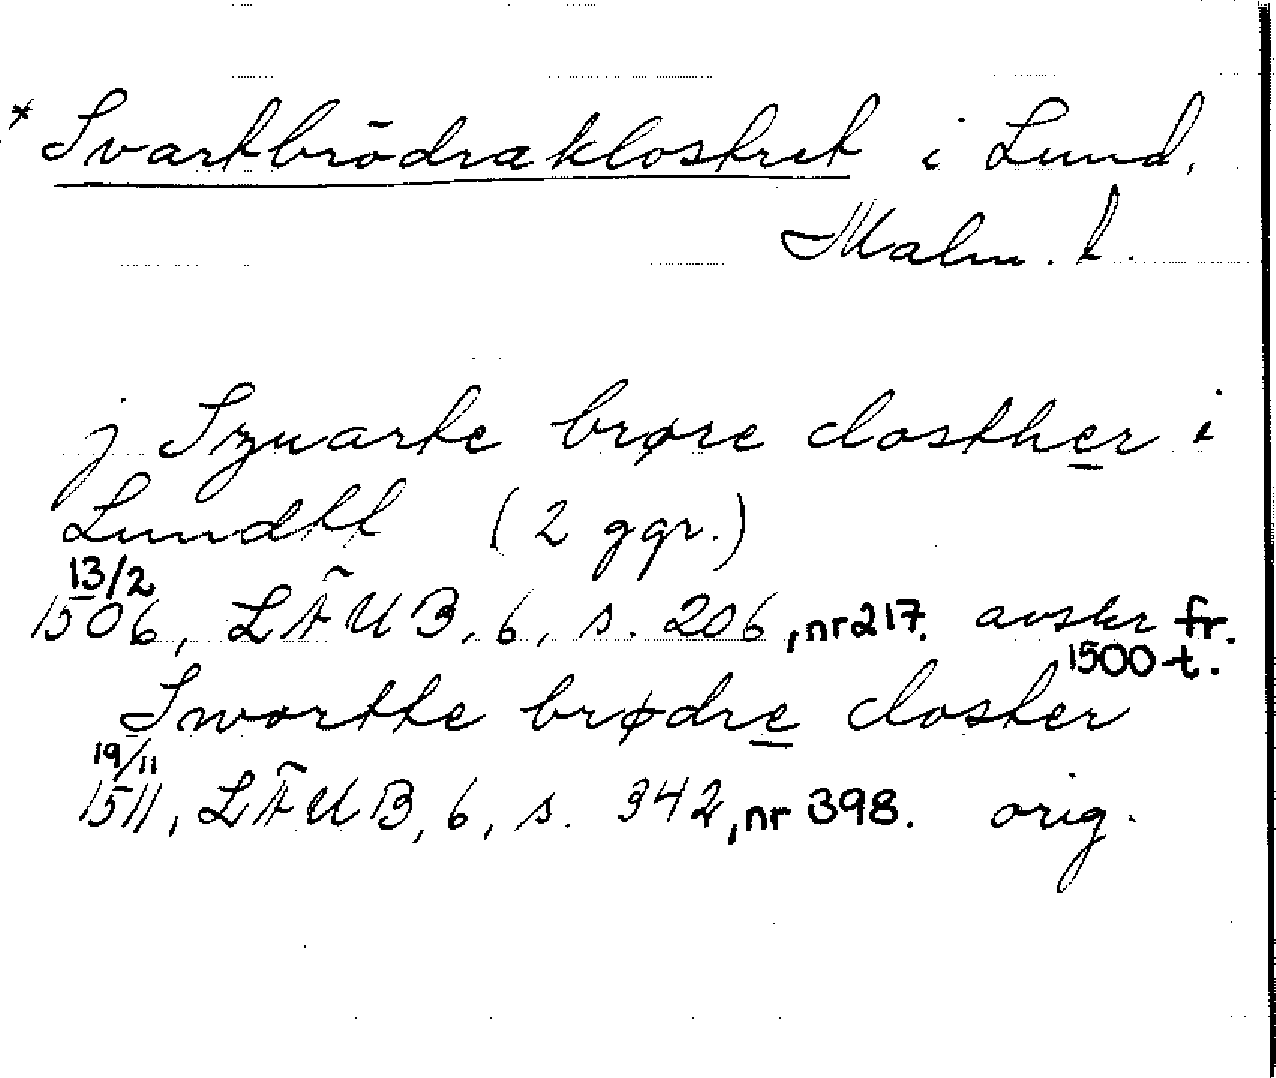 * Svartbrödraklostret i Lund.
Malm. l.
j Szuarte brøre closther i
Lundtt (2 ggr.)
13/2
1506, LÄUB, 6, s. 206, nr 217. avskr fr.
1500-t.
Swortte brødre closter
19/11
1511, LÄUB, 6, s. 342, nr 398. orig.